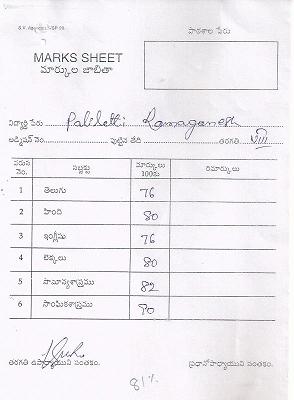 పాఠశాల పేరు
MARKS SHEET
మార్కుల జాబితా
విద్యార్థి పేరు Paliletti Ramaganesh
అడ్మిషన్ నెం. పుట్టిన తేది తరగతి VIII
వరుస నెం. సబ్జెక్టు మార్కులు 100కు రిమార్కులు
1 తెలుగు 76
2 హింది 80
3 ఇంగ్లీషు 76
4 లెక్కలు 80
5 సామాన్యశాస్త్రము 82
6 సాంఘికశాస్త్రము 90
తరగతి ఉపాధ్యాయుని సంతకం. ప్రధానోపాధ్యాయుని సంతకం.
81%